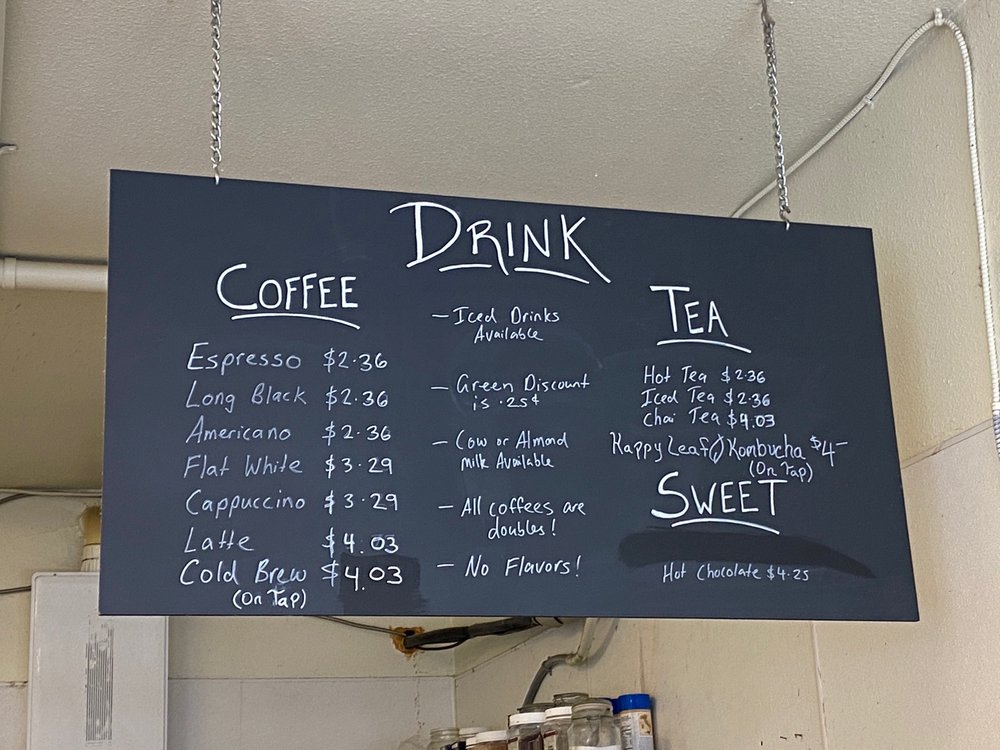 DRINK
COFFEE
Espresso $2.36
Long Black $2.36
Americano $2.36
Flat White $3.29
Cappuccino $3.29
Latte $4.03
Cold Brew $4.03
(On Tap)
— Iced Drinks
Available
— Green Discount
is .25¢
— Cow or Almond
Milk Available
— All coffees are
doubles!
— No Flavors!
TEA
Hot Tea $2.36
Iced Tea $2.36
Chai Tea $4.03
Kappy Leaf Kombucha $4—
(On Tap)
SWEET
Hot Chocolate $4.25